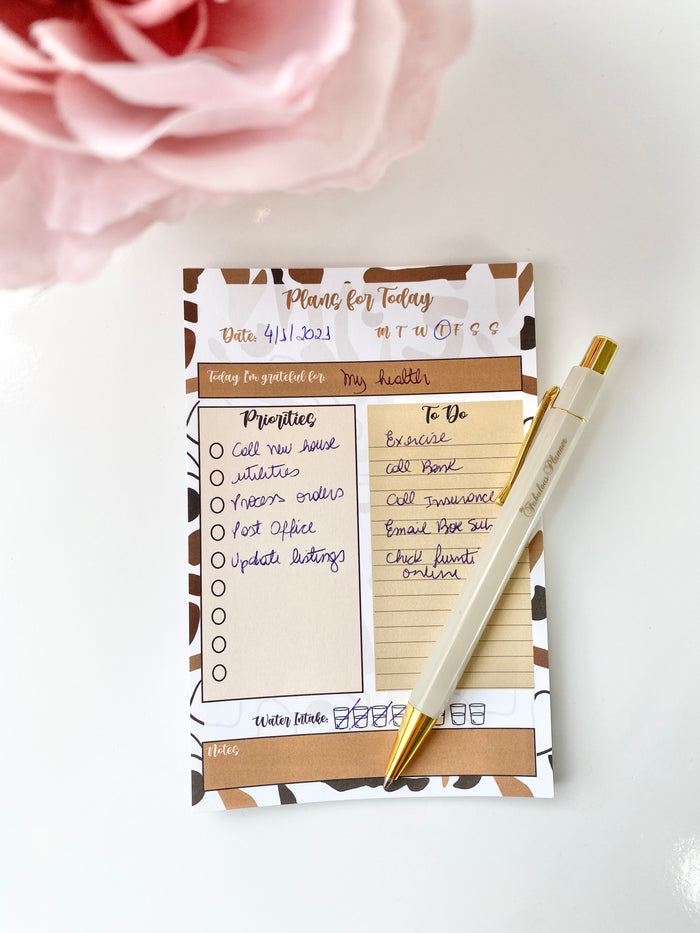 Plans for Today
Date: 4/1/2021 M T W T F S S
Today I'm grateful for: My health
Priorities
Call new house
utilities
Process orders
Post Office
Update listings
To Do
Exercise
Call Bank
Call Insurance
Email Box Sub
Check furniti
online
Water Intake:
Notes
Fabulous Planner